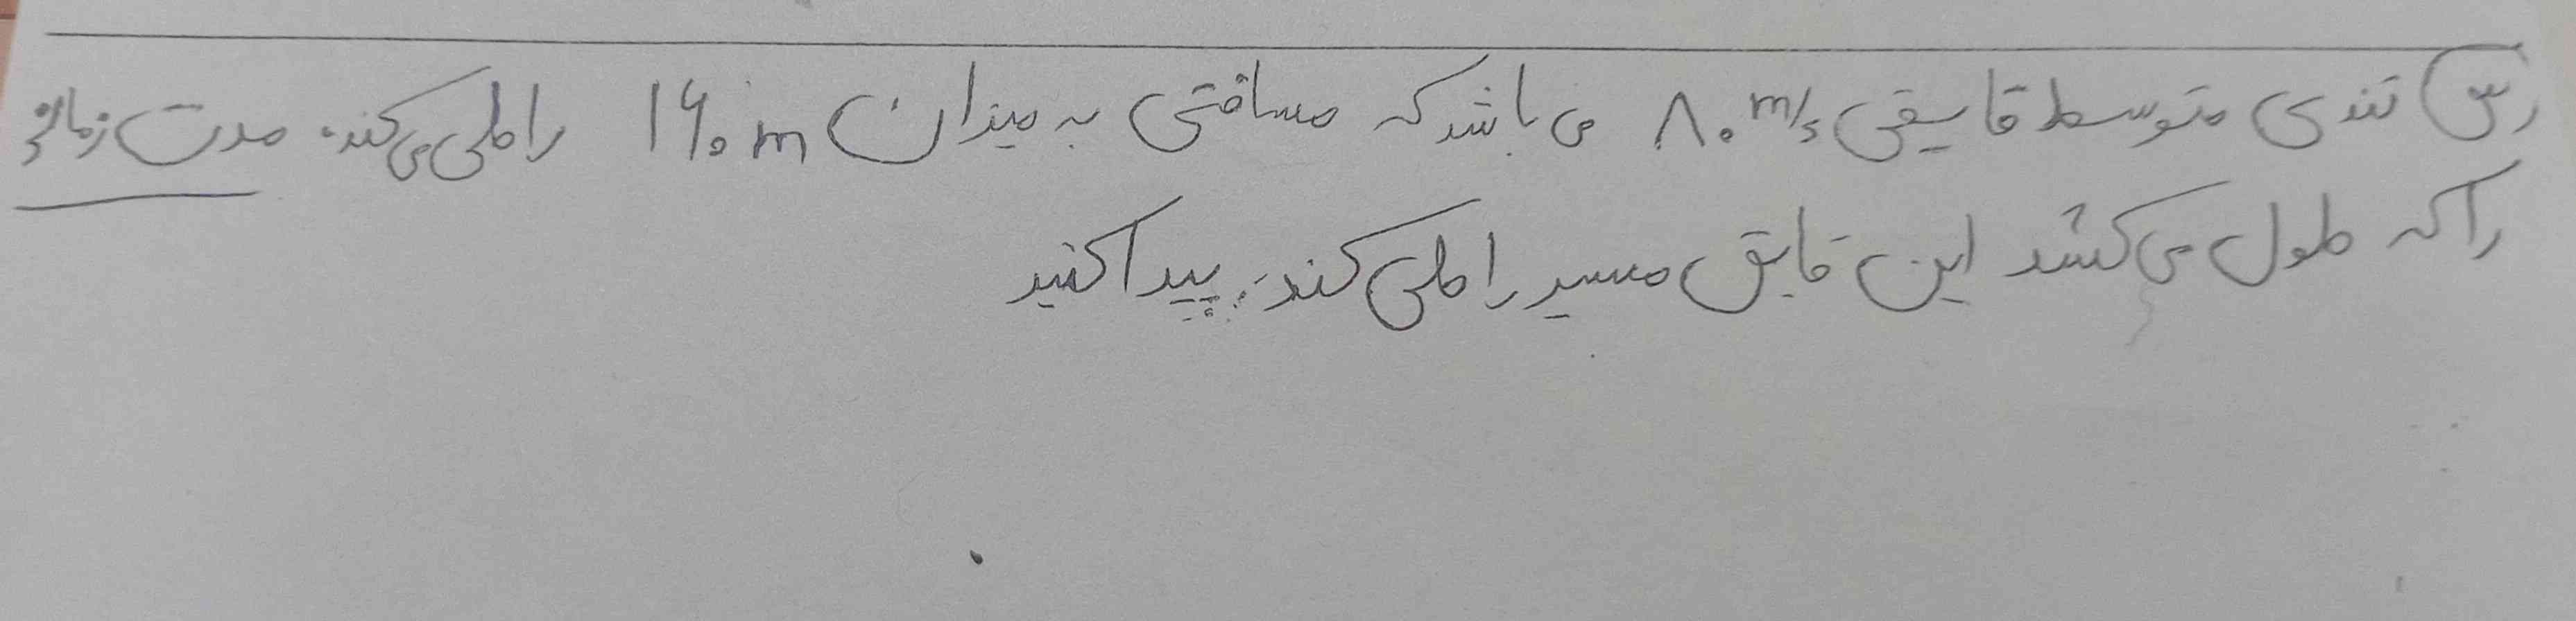 س تندی متوسط قایقی ۸۰ m/s می باشد که مسافتی به میزان ۱۶۰ m را طی می کند. مدت زمانی
را که طول می کشد این قایق مسیر را طی کند، پیدا کنید